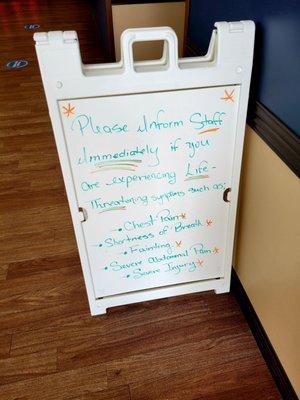 Please Inform Staff
Immediately if you
are experiencing Life-
Threatening symptoms such as:
• Chest Pain
• Shortness of Breath
• Fainting
• Severe Abdominal Pain
• Severe Injury